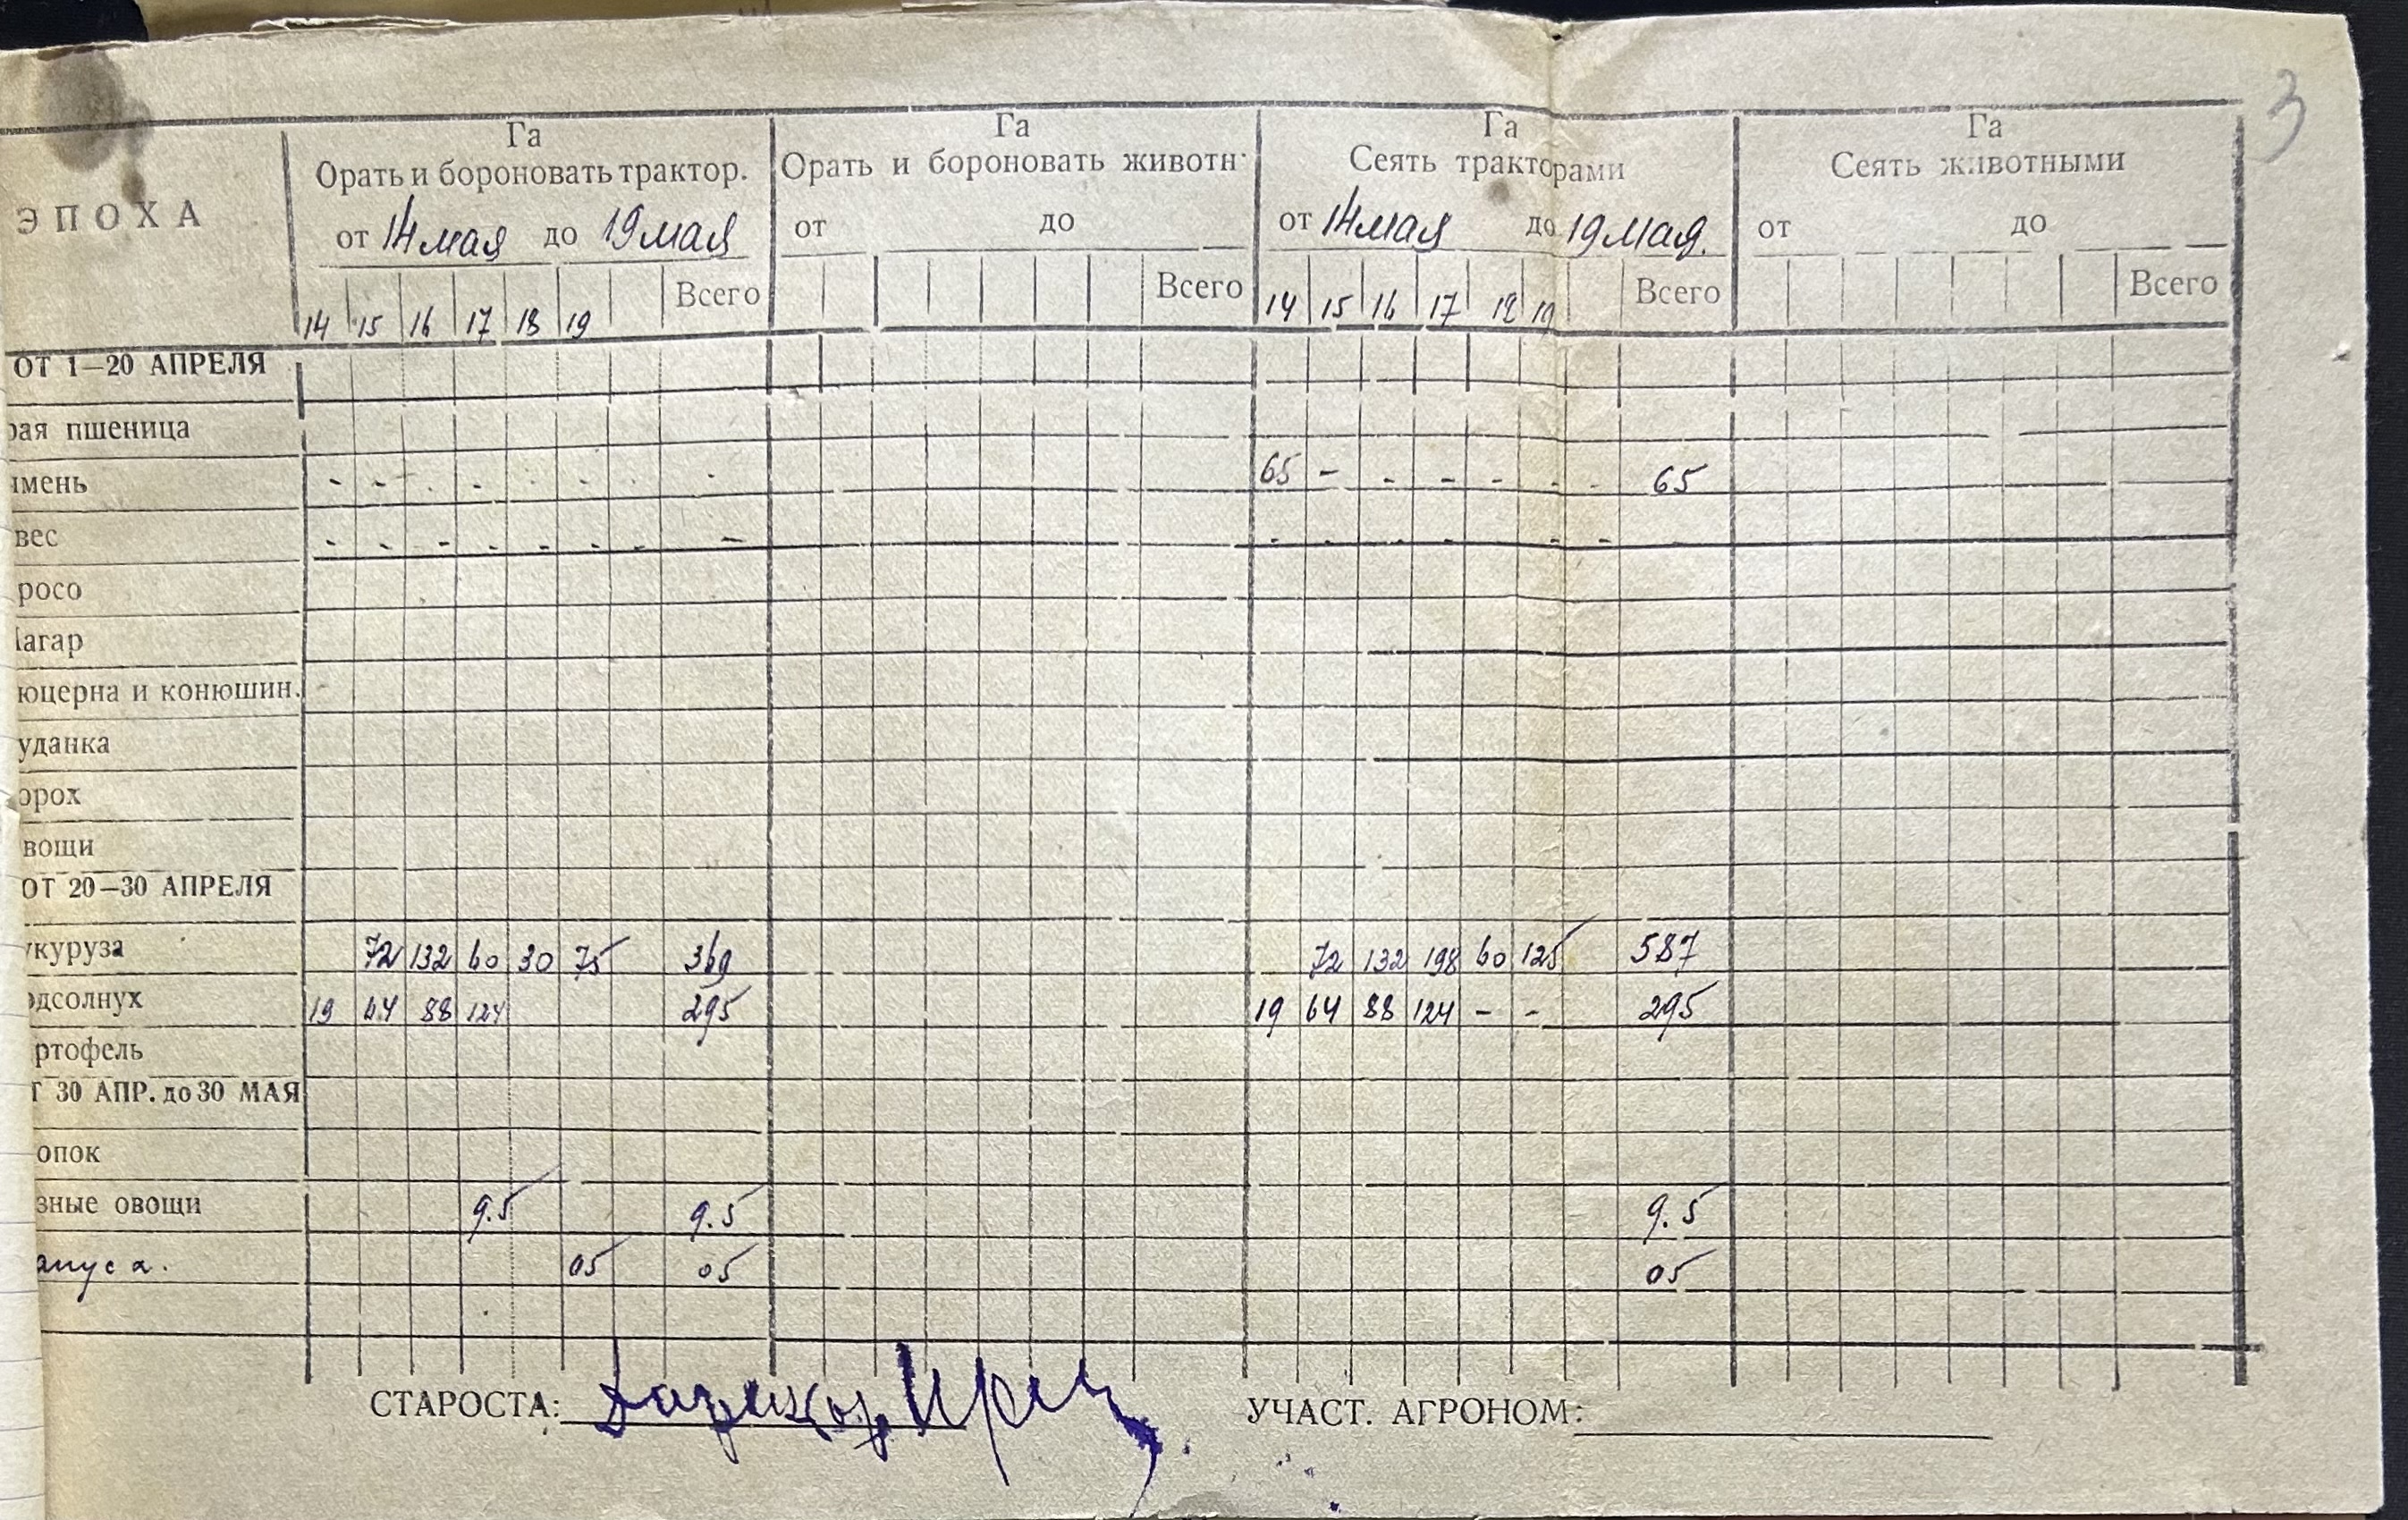 3
Га Га Га Га
Орать и бороновать трактор. Орать и бороновать животн. Сеять тракторами Сеять животными
ЭПОХА
от 14 мая до 19 мая от до от 14 мая до 19 мая. от до
14 15 16 17 18 19 Всего Всего 14 15 16 17 18 19 Всего Всего
ОТ 1—20 АПРЕЛЯ
рая пшеница
имень - - . - . - . - 65 - - - - - - 65
вес - - - - - - - - - - - - - -
росо
агар
юцерна и конюшин.
уданка
орох
вощи
ОТ 20—30 АПРЕЛЯ
укуруза 72 132 60 30 75 369 72 132 198 60 125 587
одсолнух 19 64 88 124 295 19 64 88 124 - - 295
ртофель
Т 30 АПР. до 30 МАЯ
опок
зные овощи 9.5 9.5 9.5
апуса. 05 05 05
СТАРОСТА: УЧАСТ. АГРОНОМ: